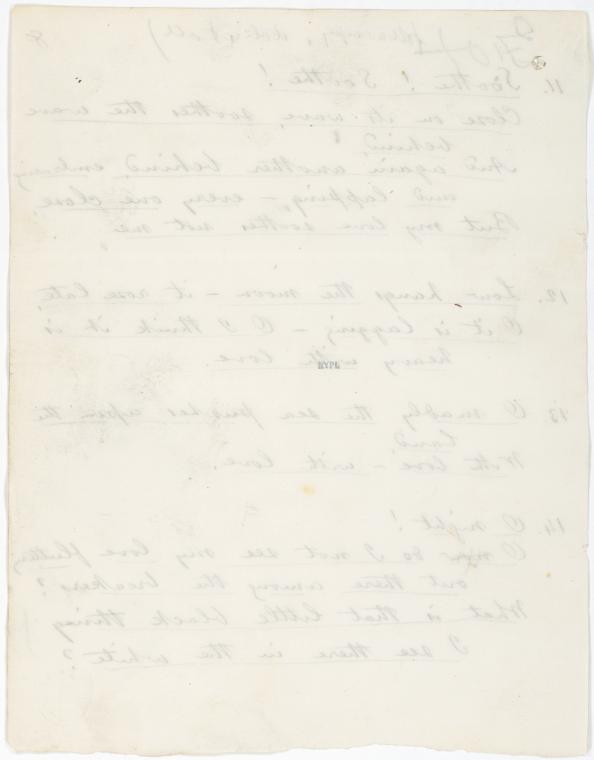 8
11. Soothe! Soothe!
Close on its wave, soothes the wave
behind,
And again another behind, embracing
and lapping, – every one close,
But my love soothes not me.
12. Low-hangs the moon – it rose late,
O it is lagging – O I think it is
heavy with love.
NYPL
13. O madly the sea pushes upon the
land,
With love – with love.
14. O night!
O do I not see my love fluttering
out there among the breakers?
What is that little black thing
I see there in the white?